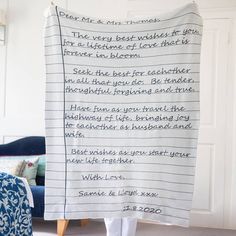 Dear Mr & Mrs Thomas,
The very best wishes to you
for a lifetime of love that is
forever in bloom.
Seek the best for eachother
in all that you do. Be tender,
thoughtful forgiving and true.
Have fun as you travel the
highway of life, bringing joy
to eachother as husband and
wife.
Best wishes as you start your
new life together.
With Love,
Samie & Lloyd xxx
21.8.2020